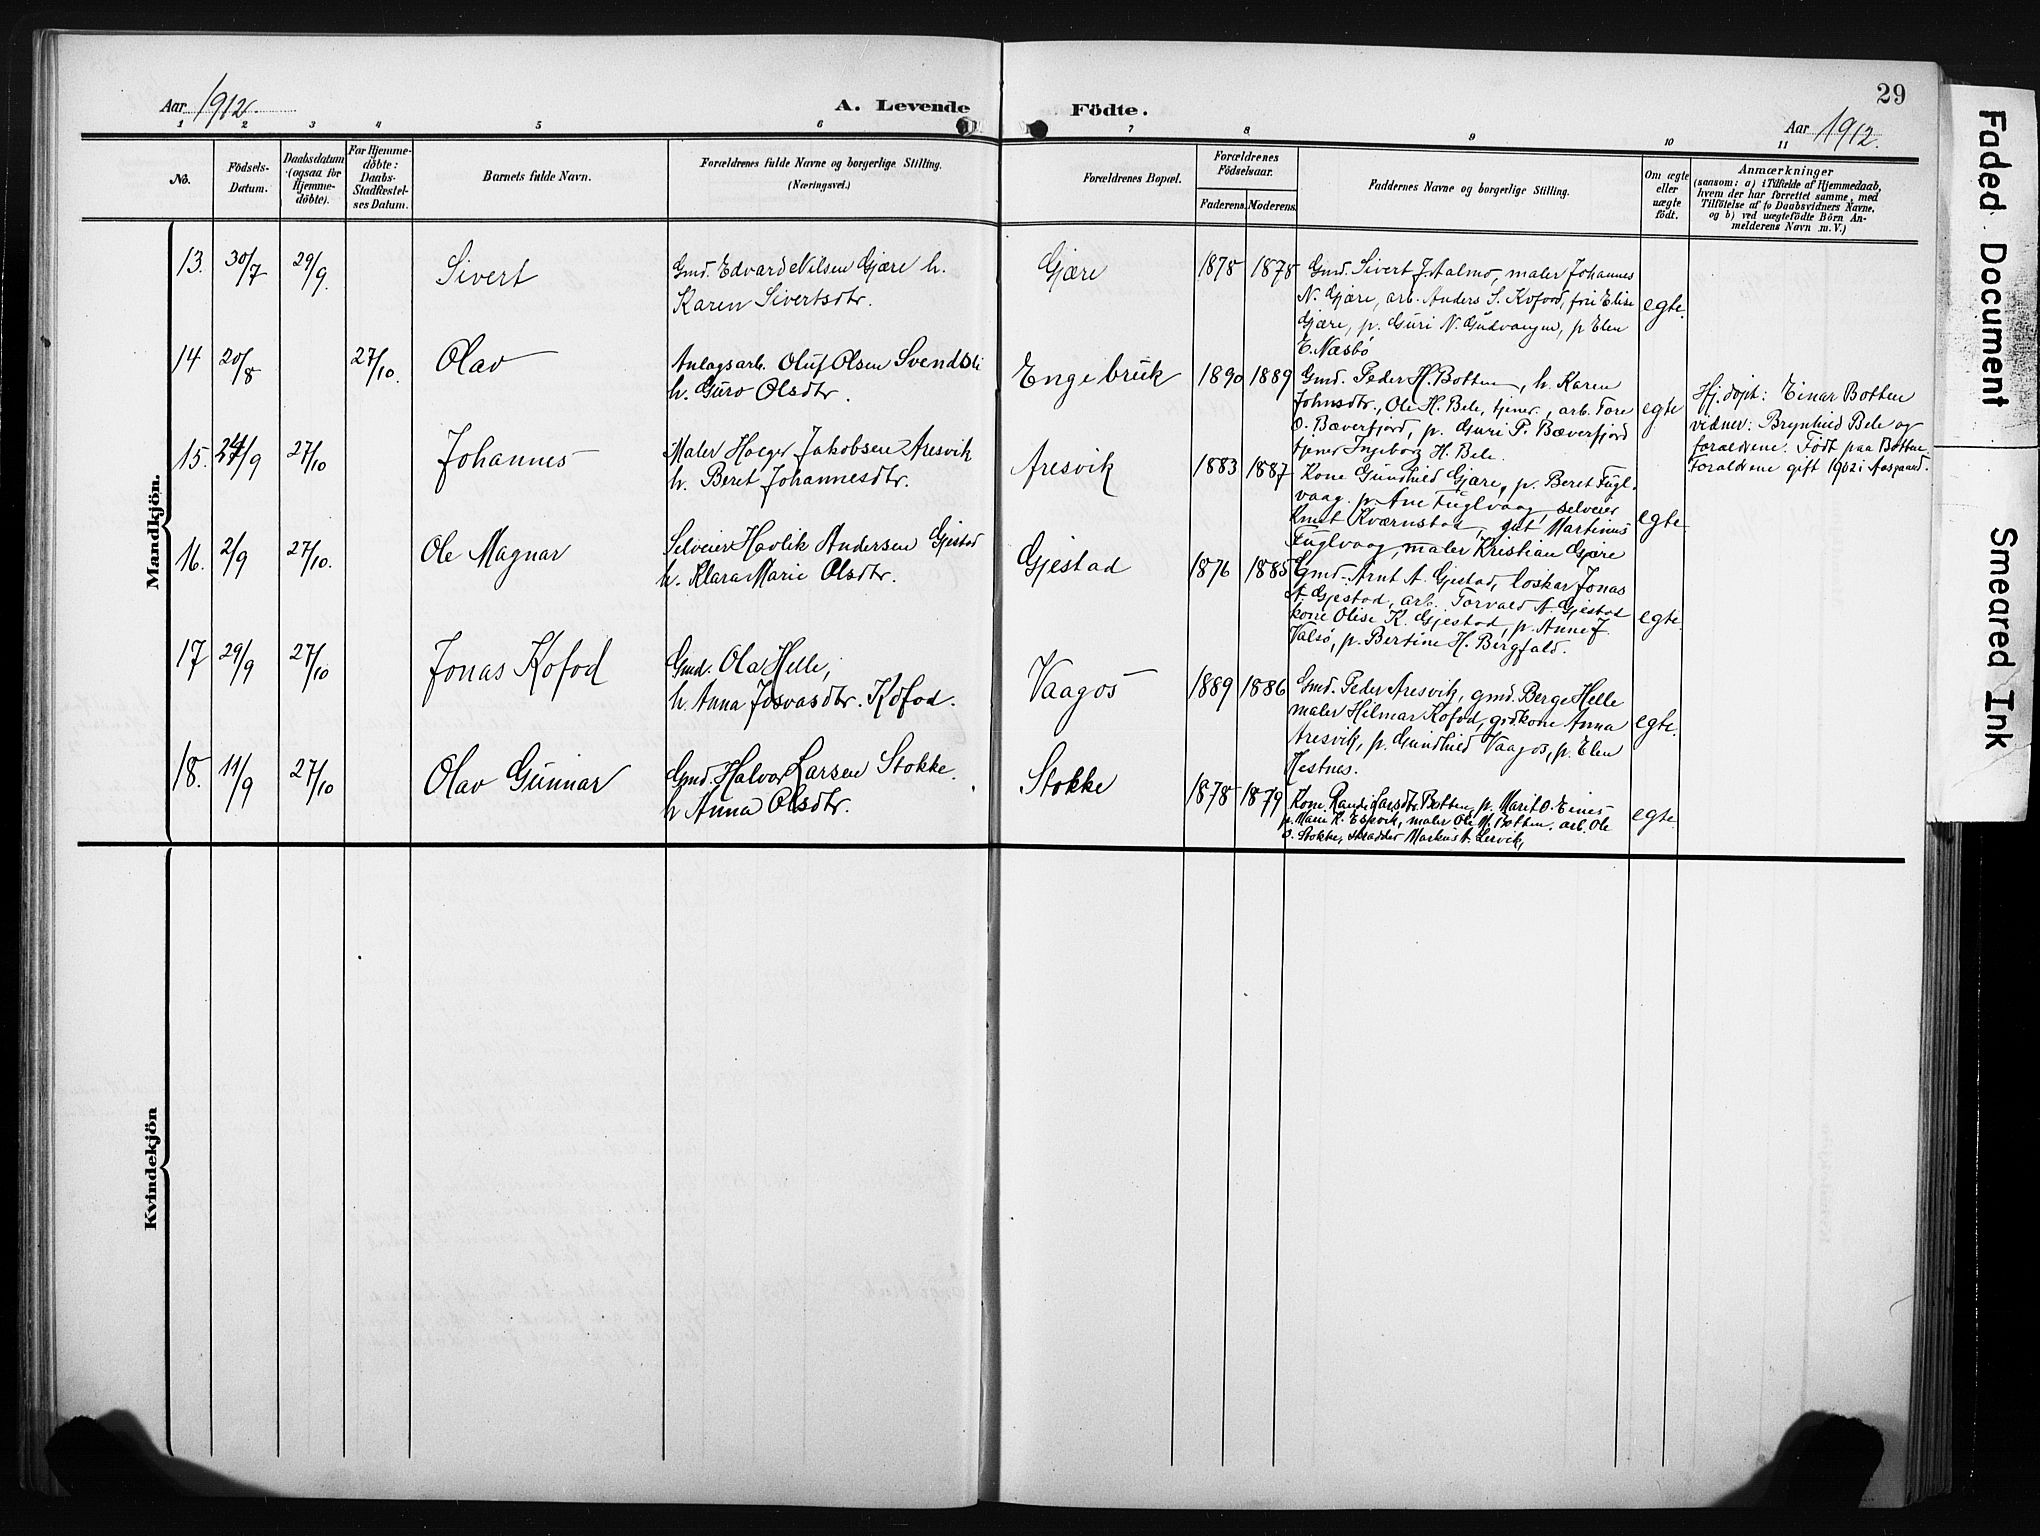 29
Aar 1912.
A. Levende Födte.
Aar 1912.
1 2 3 4 5 6 7 8 9 10 11
No.
Födsels-Datum.
Daabsdatum (ogsaa for Hjemme-döbte).
For Hjemme-döbte: Daabs-Stadfæstel-ses Datum.
Barnets fulde Navn.
Forældrenes fulde Navne og borgerlige Stilling.
(Næringsvei.)
Forældrenes Bopæl.
Forældrenes Födselsaar.
Faderens. Moderens.
Faddernes Navne og borgerlige Stilling.
Om ægte eller uægte födt.
Anmærkninger
(saasom: a) i Tilfælde af Hjemmedaab,
hvem der har forrettet samme, med
Tilföielse af to Daabsvidners Navne,
og b) ved uægtefödte Börn An-
melderens Navn m. V.)
Mandkjön.
13. 30/7 29/9. Sivert
Gmd. Edvard Nilsen Gjære h.
Karen Sivertsdtr.
Gjære 1878 1878
Gmd. Sivert J. Aalmo, maler Johannes
N. Gjære, arb. Anders S. Kofod, frii Elise
Gjære, p. Guri N. Gudvangen, p Elen
E. Næsbö
egte.
14 20/8 27/10. Olav
Anlagsarb. Oluf Olsen Svendsli
h. Guro Olsdtr.
Engebruk 1890 1889
Gmd. Peder H. Botten, h. Karen
Johnsdtr., Ole H. Bele, tjener, arb. Tore
O. Bæverfjord, p. Guri P. Bæverfjord
tjener Ingeborg H. Bele.
egte
Hj. döpt: Einar Botten
vidner: Brynhild Bele og
foraldrene. Födt paa Botten
Foraldrene gift 1912 i Aasgaard.
15. 24/9 27/10 Johannes
Maler Holger Jakobsen Aresvik
h. Beret Johannesdtr.
Aresvik 1883 1887
Kone Gunhild Gjære, p. Beret Fugl-
vaag, p. Ane Fuglvaag, selveier
Knut Kværnstad, gut Martinus
Fuglvaag, maler Kristian Gjære
egte
16. 2/9 27/10. Ole Magnar
Selveier Havlik Andersen Gjestad
h. Klara Marie Olsdtr.
Gjestad 1876 1885
Gmd. Arnt A. Gjestad, löskar Jonas
A. Gjestad, arb. Torvald A. Gjestad
kone Olise K. Gjestad, p. Anne J.
Valsö, p. Bertine H. Bergfald.
egte.
17 29/9 27/10 Jonas Kofod
Gmd. Ola Helle,
h. Anna Josvasdtr. Kofod.
Vaagos 1889 1886
Gmd. Peder Aresvik, gmd. Berge Helle
maler Hilmar Kofod, grdkone Anna
Aresvik, p. Gunhild Vaagos, p. Elen
Hestnes.
egte.
18. 11/9 27/10 Olav Gunnar
Gmd. Halvor Larsen Stokke.
h Anna Olsdtr.
Stokke 1878 1879
Kone Randi Larsdtr. Botten, p. Marit O. Eines
p. Marie K. Espvik, maler Ole M. Botten, arb. Ole
O. Stokke, skradder Markus A. Lervik,
egte.
Kvindekjön
Faded Document Smeared Ink